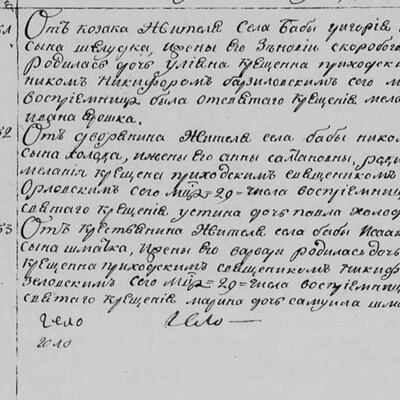 51
Отъ козака жителя села Бабы григорія
сына швыдка, ижены Его Зѣновіи скоробога
Родилась дочь Уліяна крещенна приходски
никомъ Никифоромъ базиловскимъ сего м
воспріемница была отсвятаго крещенія мела
ивана
52
Отъ дворянина жителя села бабы никол
сына холода, ижены его анны
меланія крещена приходскимъ священикомъ
Орловскимъ сего =29= числа воспріемниц
святаго крещенія устина дочь павла холо
53
Отъ крестьянина жителя села бабы Исаак
сына шмачка, ижены Его варвары родилась дочь
крещенна приходскимъ священикомъ никиф
зеловскимъ сего =29= числа воспріемниц
святаго крещенія марина дочь самуила шма